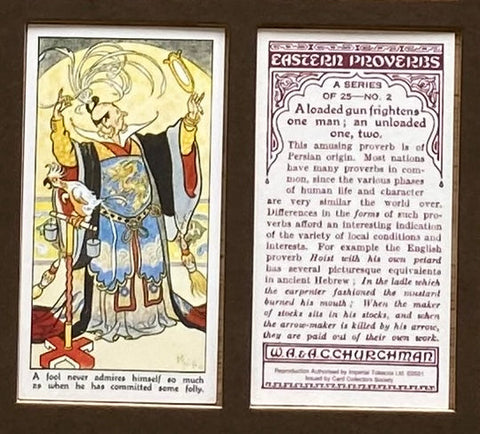 A fool never admires himself so much
as when he has committed some folly.
EASTERN PROVERBS
A SERIES
OF 25—NO. 2
A loaded gun frightens
one man; an unloaded
one, two.
This amusing proverb is of
Persian origin. Most nations
have many proverbs in com-
mon, since the various phases
of human life and character
are very similar the world over.
Differences in the forms of such pro-
verbs afford an interesting indication
of the variety of local conditions and
interests. For example the English
proverb Hoist with his own petard
has several picturesque equivalents
in ancient Hebrew; In the ladle which
the carpenter fashioned the mustard
burned his mouth; When the maker
of stocks sits in his stocks, and when
the arrow-maker is killed by his arrow,
they are paid out of their own work.
W.A.&A.C.CHURCHMAN
Reproduction Authorised by Imperial Tobacco Ltd.
Issued by Card Collectors Society